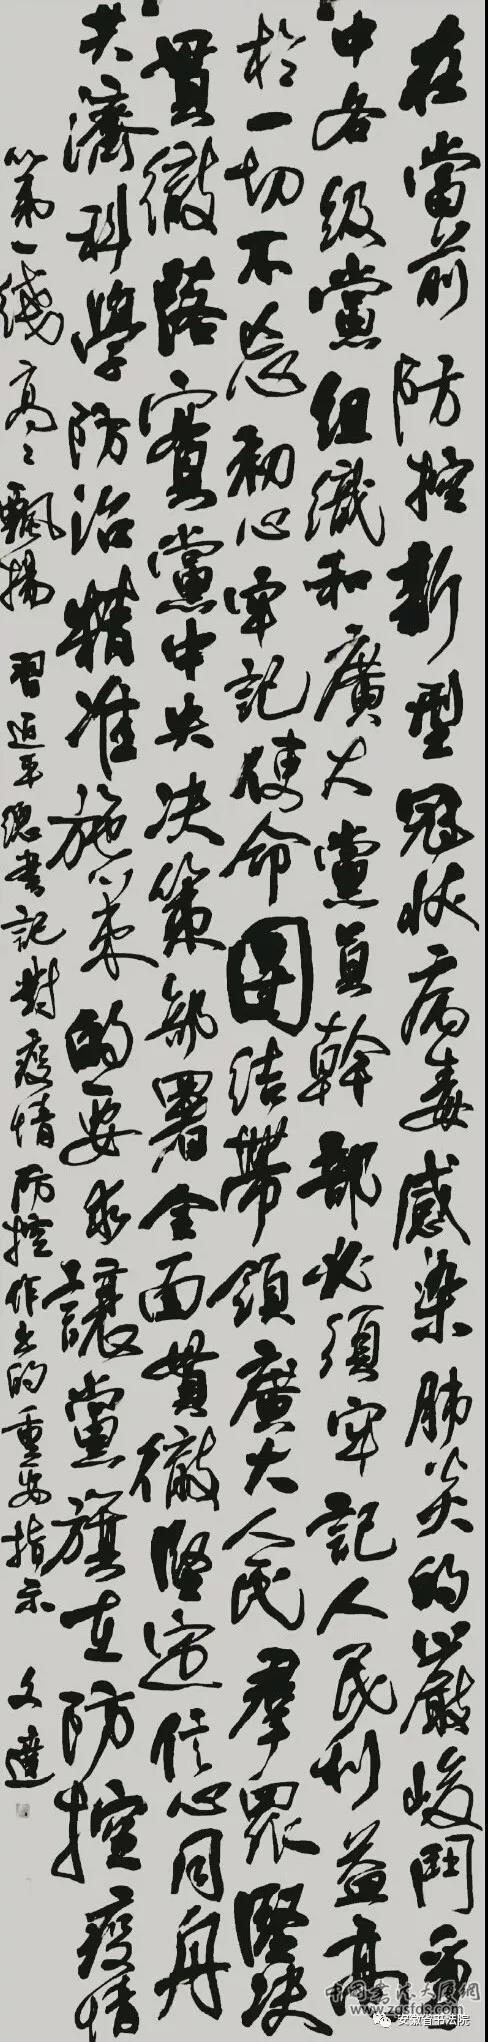 在當前防控新型冠狀病毒感染肺炎的嚴峻鬥爭
中各級黨組織和廣大黨員幹部必須牢記人民利益高
於一切不忘初心牢記使命團结帶領廣大人民羣眾堅决
貫徹落實黨中央决策部署全面貫徹堅定信心同舟
共濟科學防治精准施策的要求讓黨旗在防控疫情
第一綫高々飄揚 習近平總書記對疫情防控作出的重要指示 文達
中国书法大展网
www.zgsfds.com
安徽省书法院